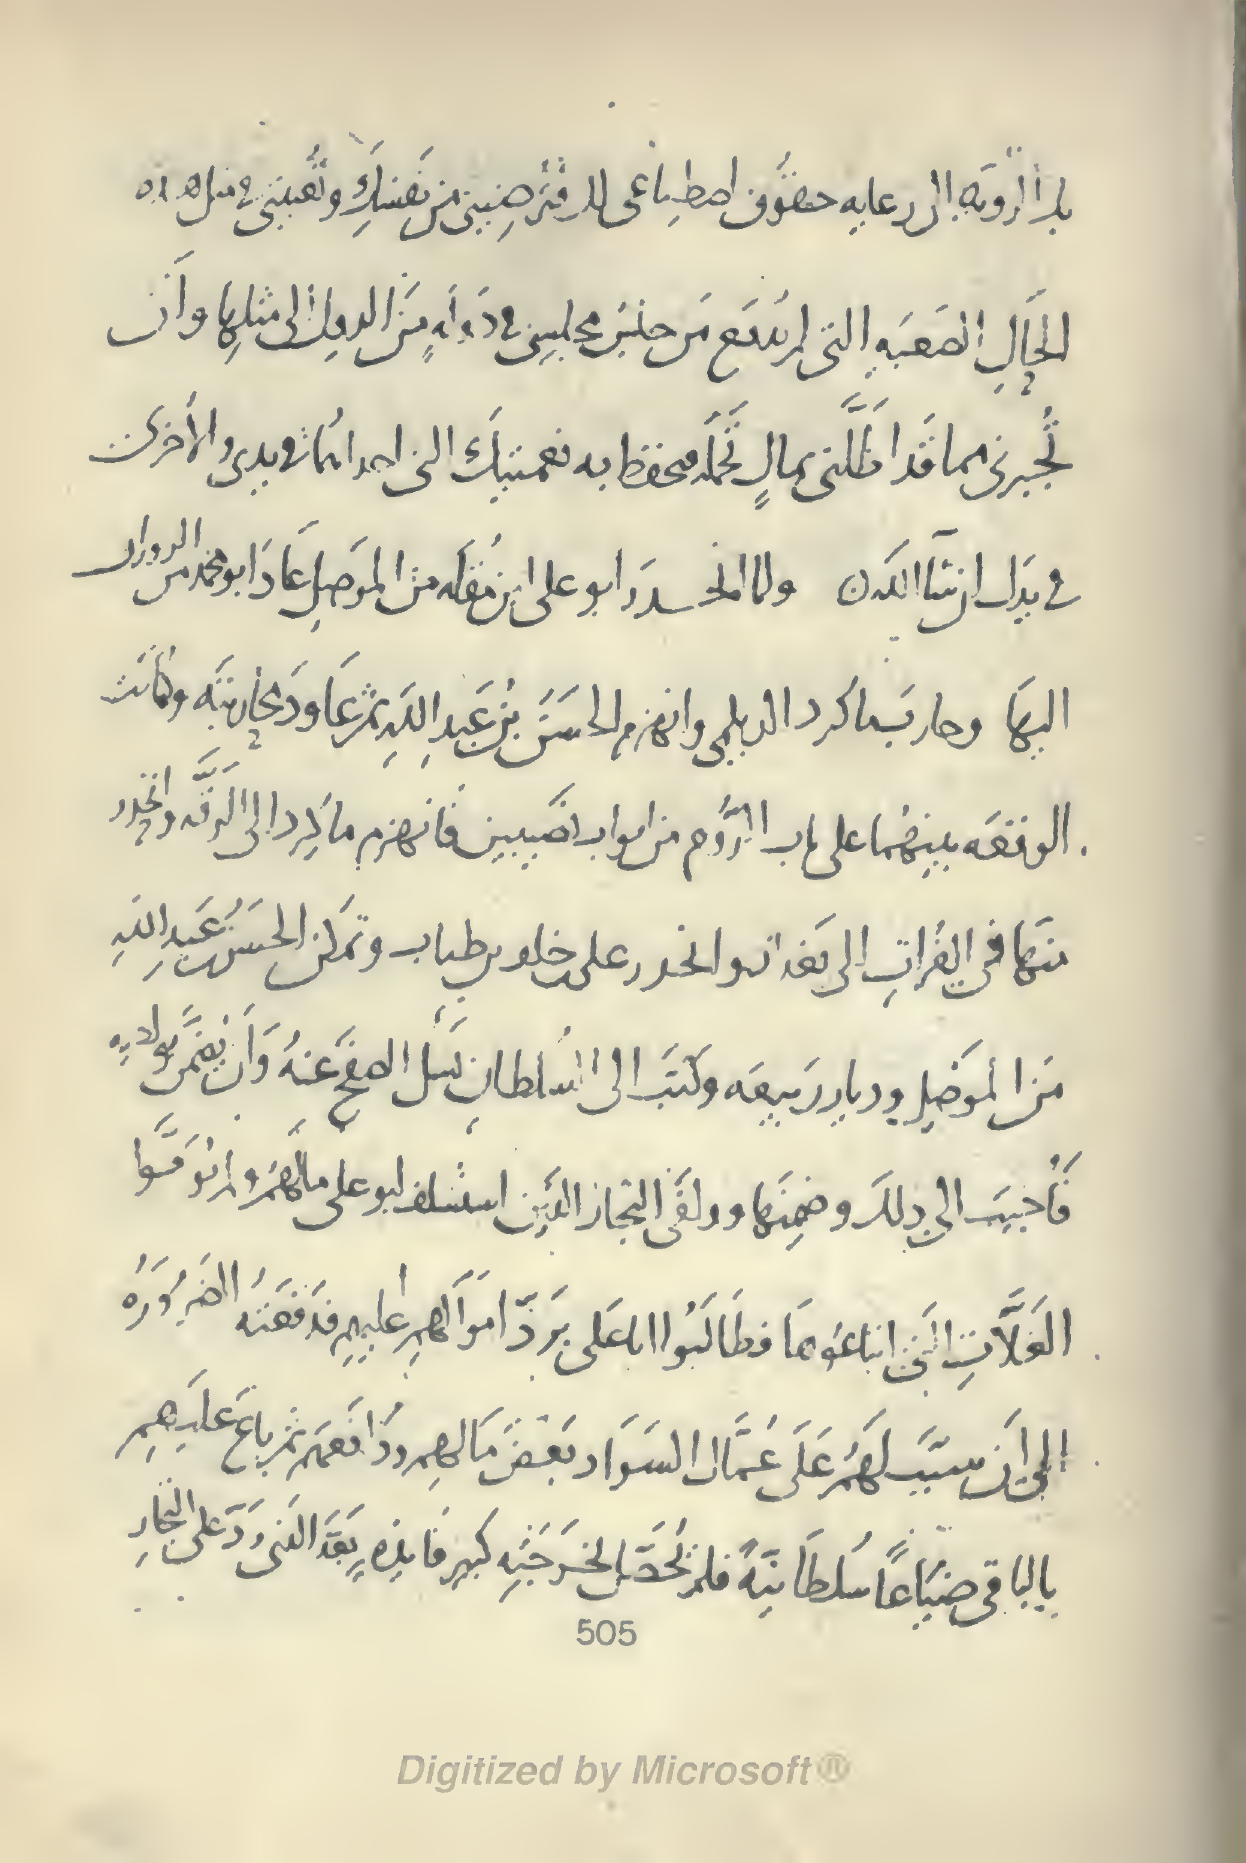 الى رعايه حقوق اصطناعى لك فترضينى من نفسك وتعيننى فى مثل هذه
الحال الصعبه التى لم تدفع من جلس مجلسى فى دوله من الدول الى مثلها وان
تجيرنى مما قد اظلنى بمال تحمله تحفظ به نعمتيك التى احداهما فى يدى والاخرى
فى يدك ان شا الله ولما انحدر ابو على ابن مقله من الموصل عاد ابو محمد من الزوزان
اليها وحارب ماكرد الديلمى وانهزم الحسن بن عبد الله ثم عاود محاربته وكانت
الوقعه بينهما على باب الروم من ابواب نصيبين فانهزم ماكرد الى الرقه وانحدر
منها فى الفرات الى بغداد وانحدر على خلف بن طياب وتمكن الحسن بن عبد الله
من الموصل وديار ربيعه وكتب الى السلطان يسل الصفح عنه وان يضمن
فاجيب الى ذلك وضمنها ووافى التجار الذين استسلف ابو على مالهم ولم يوفوا
الغلات التى ابتاعوها فطالبوا ابا على برد اموالهم عليهم فدفعته الضروره
الى ان سبب لهم على عمال السواد بعض مالهم ودافعهم ثم باع عليهم
بالباقى ضياعا سلطانيه فلم تحصل لخرجته كبير فايده بعد الذى رد على التجار
505
Digitized by Microsoft®